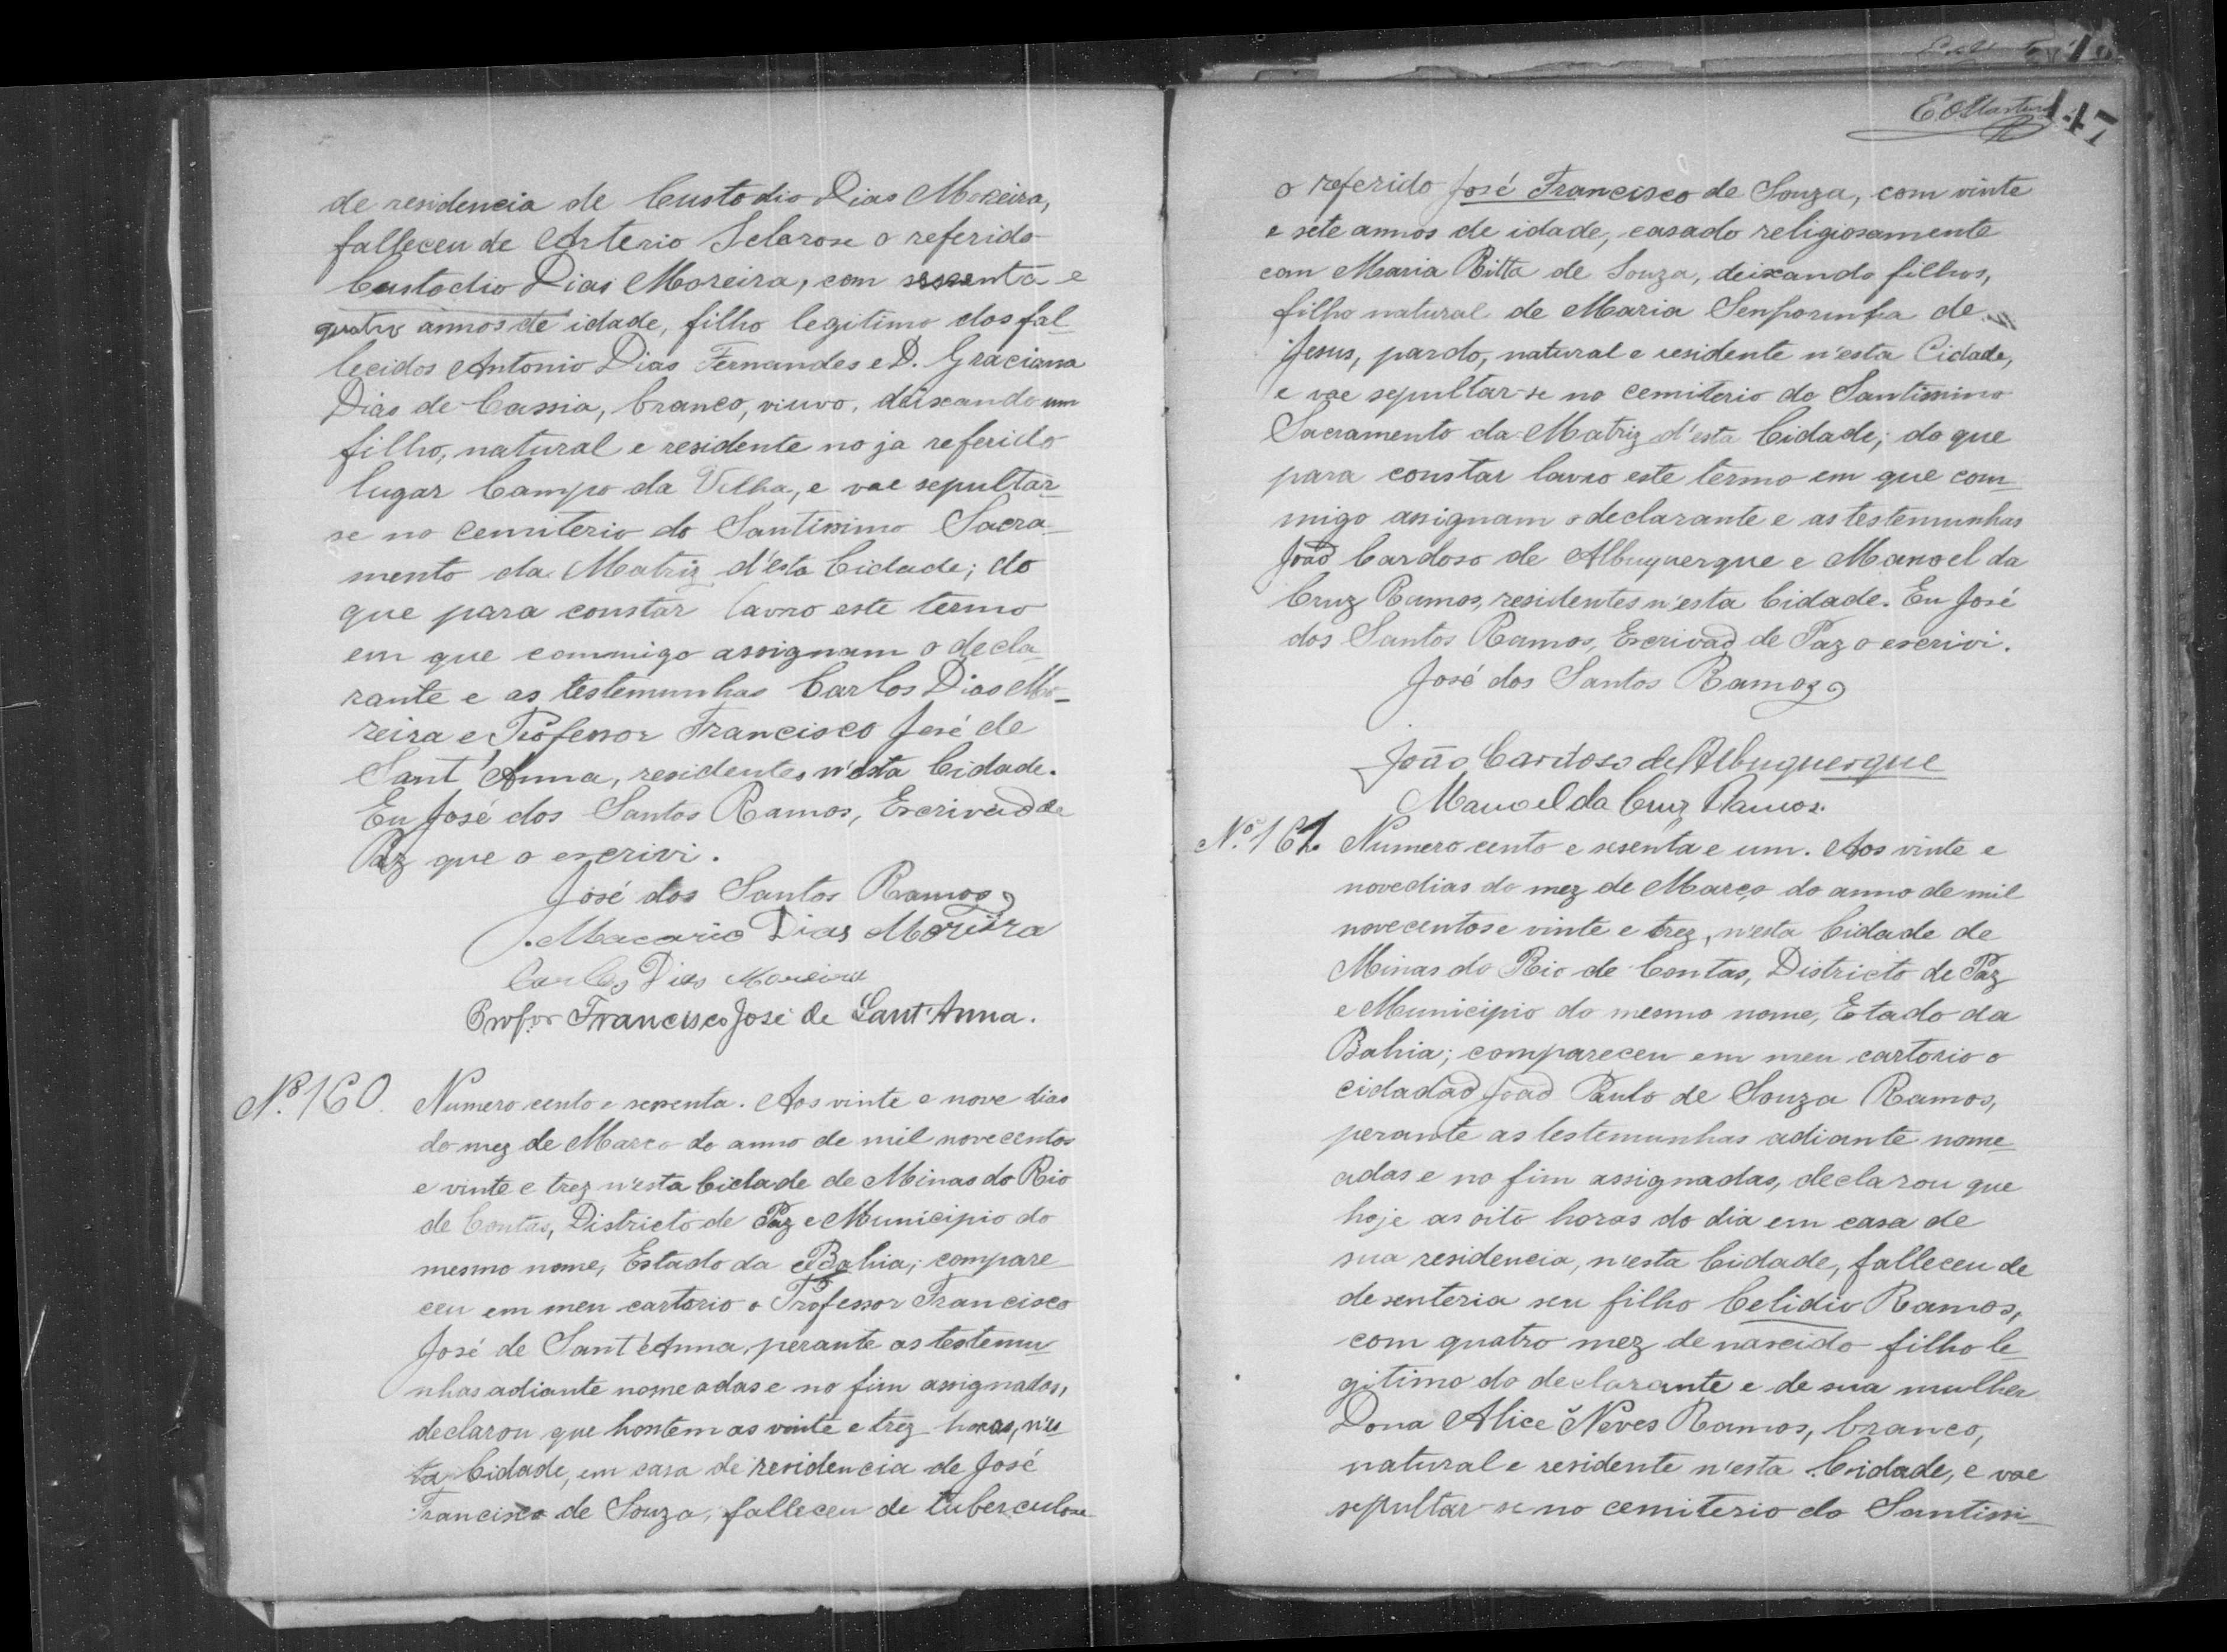 de residencia de Custodio Dias Moreira,
falleceu de Arterio Sclerose o referido
Custodio Dias Moreira, com sessenta e
quatro annos de idade, filho legitimo dos fal-
lecidos Antonio Dias Fernandes e D. Graciana
Dias de Cassia, branco, viuvo, deixando um
filho, natural e residente no ja referido
lugar Campo da Villa, e vae sepultar-
se no cemiterio do Santissimo Sacra-
mento da Matriz d'esta Cidade; do
que para constar lavro este termo
em que commigo assignam o decla-
rante e as testemunhas Carlos Dias Mo-
reira e Professor Francisco José de
Sant'Anna, residentes n'esta Cidade.
Eu José dos Santos Ramos, Escrivaõ de
Paz que o escrivi.
José dos Santos Ramos
Macario Dias Moreira
Carlos Dias Moreira
Profor Francisco José de Sant'Anna.
Nº 160. Numero cento e sessenta. Aos vinte e nove dias
do mez de Março do anno de mil novecentos
e vinte e trez n'esta Cidade de Minas do Rio
de Contas, Districto de Paz e Municipio do
mesmo nome, Estado da Bahia; compare-
ceu em meu cartorio o Professor Francisco
José de Sant'Anna, perante as testemu-
nhas adiante nomeadas e no fim assignadas,
declarou que hontem as vinte e trez horas, n'es-
ta Cidade, em casa de residencia de José
Francisco de Souza, falleceu de tuberculose
E O Martins
147
o referido José Francisco de Souza, com vinte
e sete annos de idade, casado religiosamente
com Maria Ritta de Souza, deixando filhos,
filho natural de Maria Senhorinha de
Jesus, pardo, natural e residente n'esta Cidade,
e vae sepultar-se no cemiterio do Santissimo
Sacramento da Matriz d'esta Cidade; do que
para constar lavro este termo em que com-
migo assignam o declarante e as testemunhas
Joaõ Cardoso de Albuquerque e Manoel da
Cruz Ramos, residentes n'esta Cidade. Eu José
dos Santos Ramos, Escrivaõ de Paz o escrivi.
José dos Santos Ramos
João Cardoso de Albuquerque
Manoel da Cruz Ramos.
Nº 161. Numero cento e sesenta e um. Aos vinte e
nove dias do mez de Março do anno de mil
novecentos e vinte e trez, n'esta Cidade de
Minas do Rio de Contas, Districto de Paz
e Municipio do mesmo nome, Etado da
Bahia; compareceu em meu cartorio o
cidadaõ Joaõ Paulo de Souza Ramos,
perante as testemunhas adiante nome-
adas e no fim assignadas, declarou que
hoje as oito horas do dia em casa de
sua residencia, n'esta Cidade, falleceu de
desenteria seu filho Celidio Ramos,
com quatro mez de nascido filho le-
gitimo do declarante e de sua mulher
Dona Alice Neves Ramos, branco,
natural e residente n'esta Cidade, e vae
sepultar-se no cemiterio do Santissi-